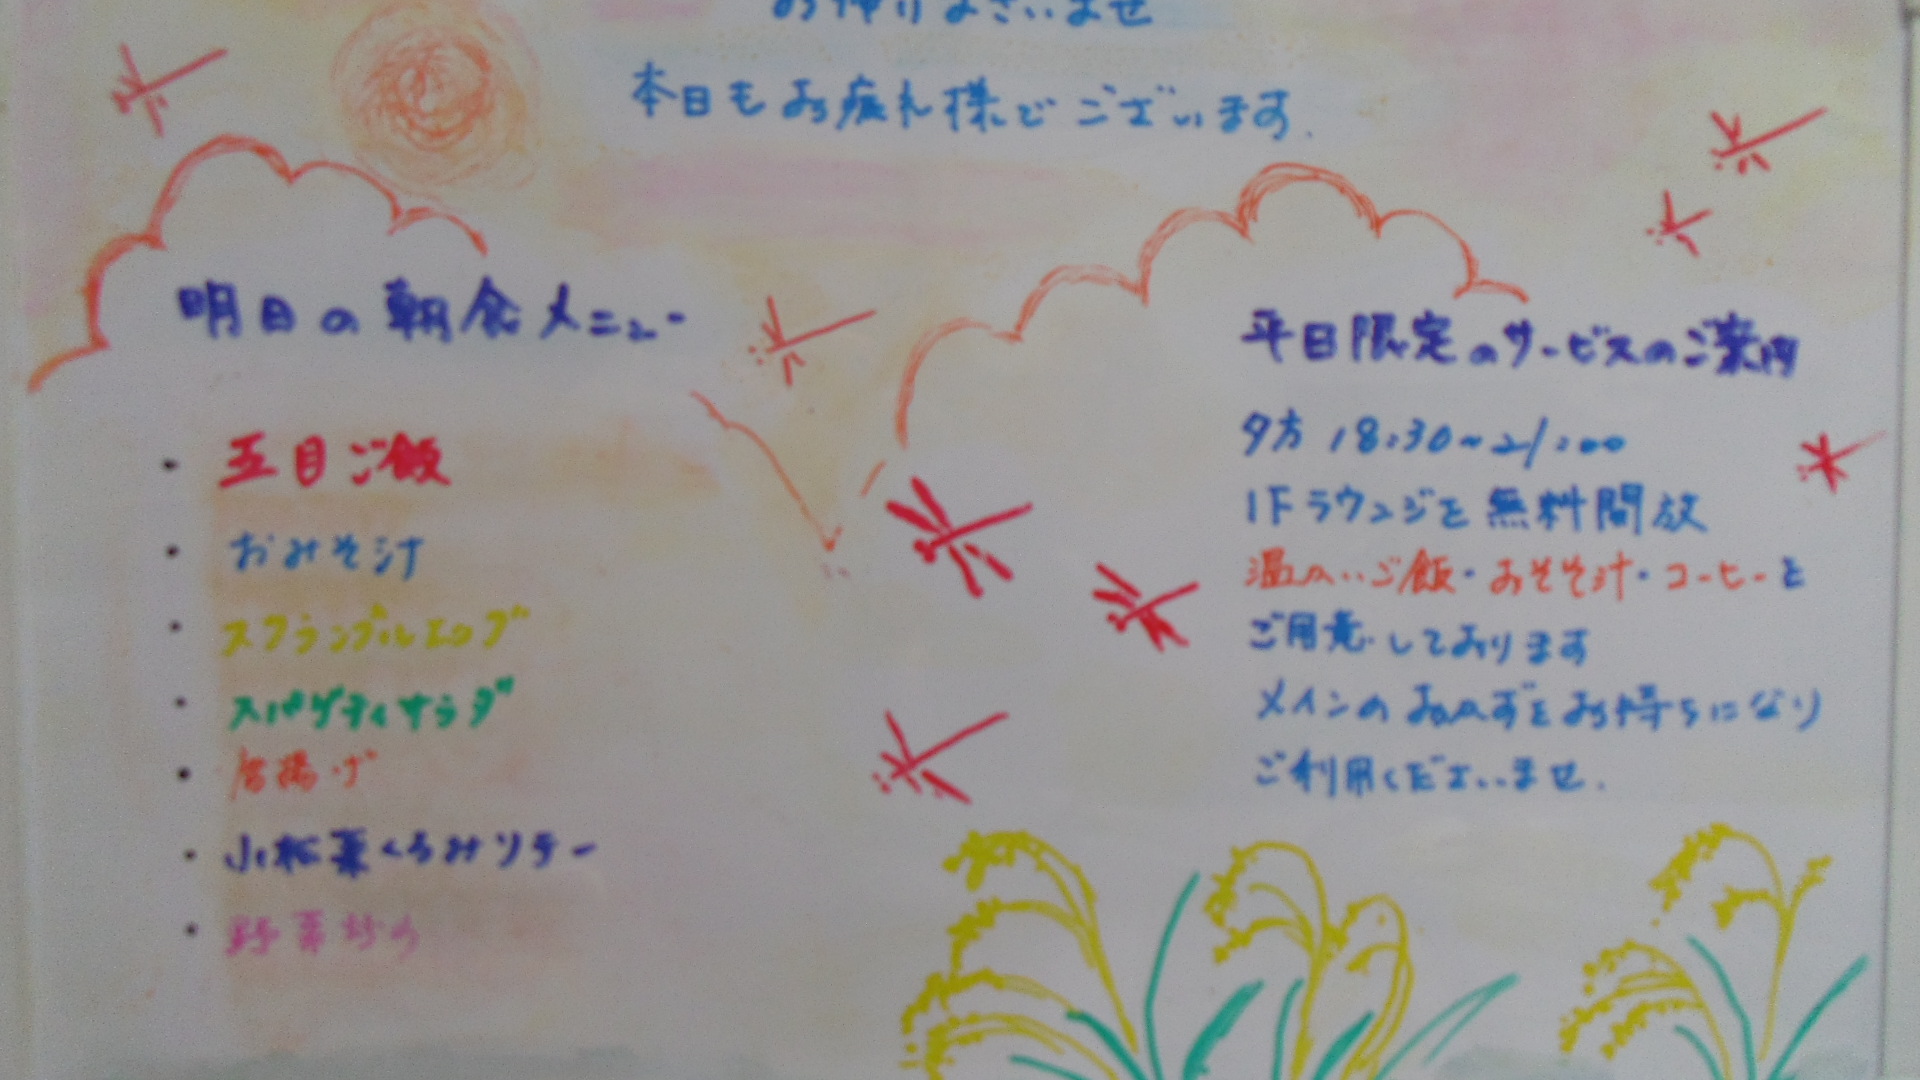 本日もお疲れ様でございます.
明日の朝食メニュー
・五目ご飯
・おみそ汁
・スクランブルエッグ
・スパゲティサラダ
・唐揚げ
・小松菜くるみソテー
・野菜炒め
平日限定のサービスのご案内
夕方 18:30~21:00
1Fラウンジを無料開放
温かいご飯・おみそ汁・コーヒーを
ご用意しております
メインのおかずをお持ちになり
ご利用くださいませ.